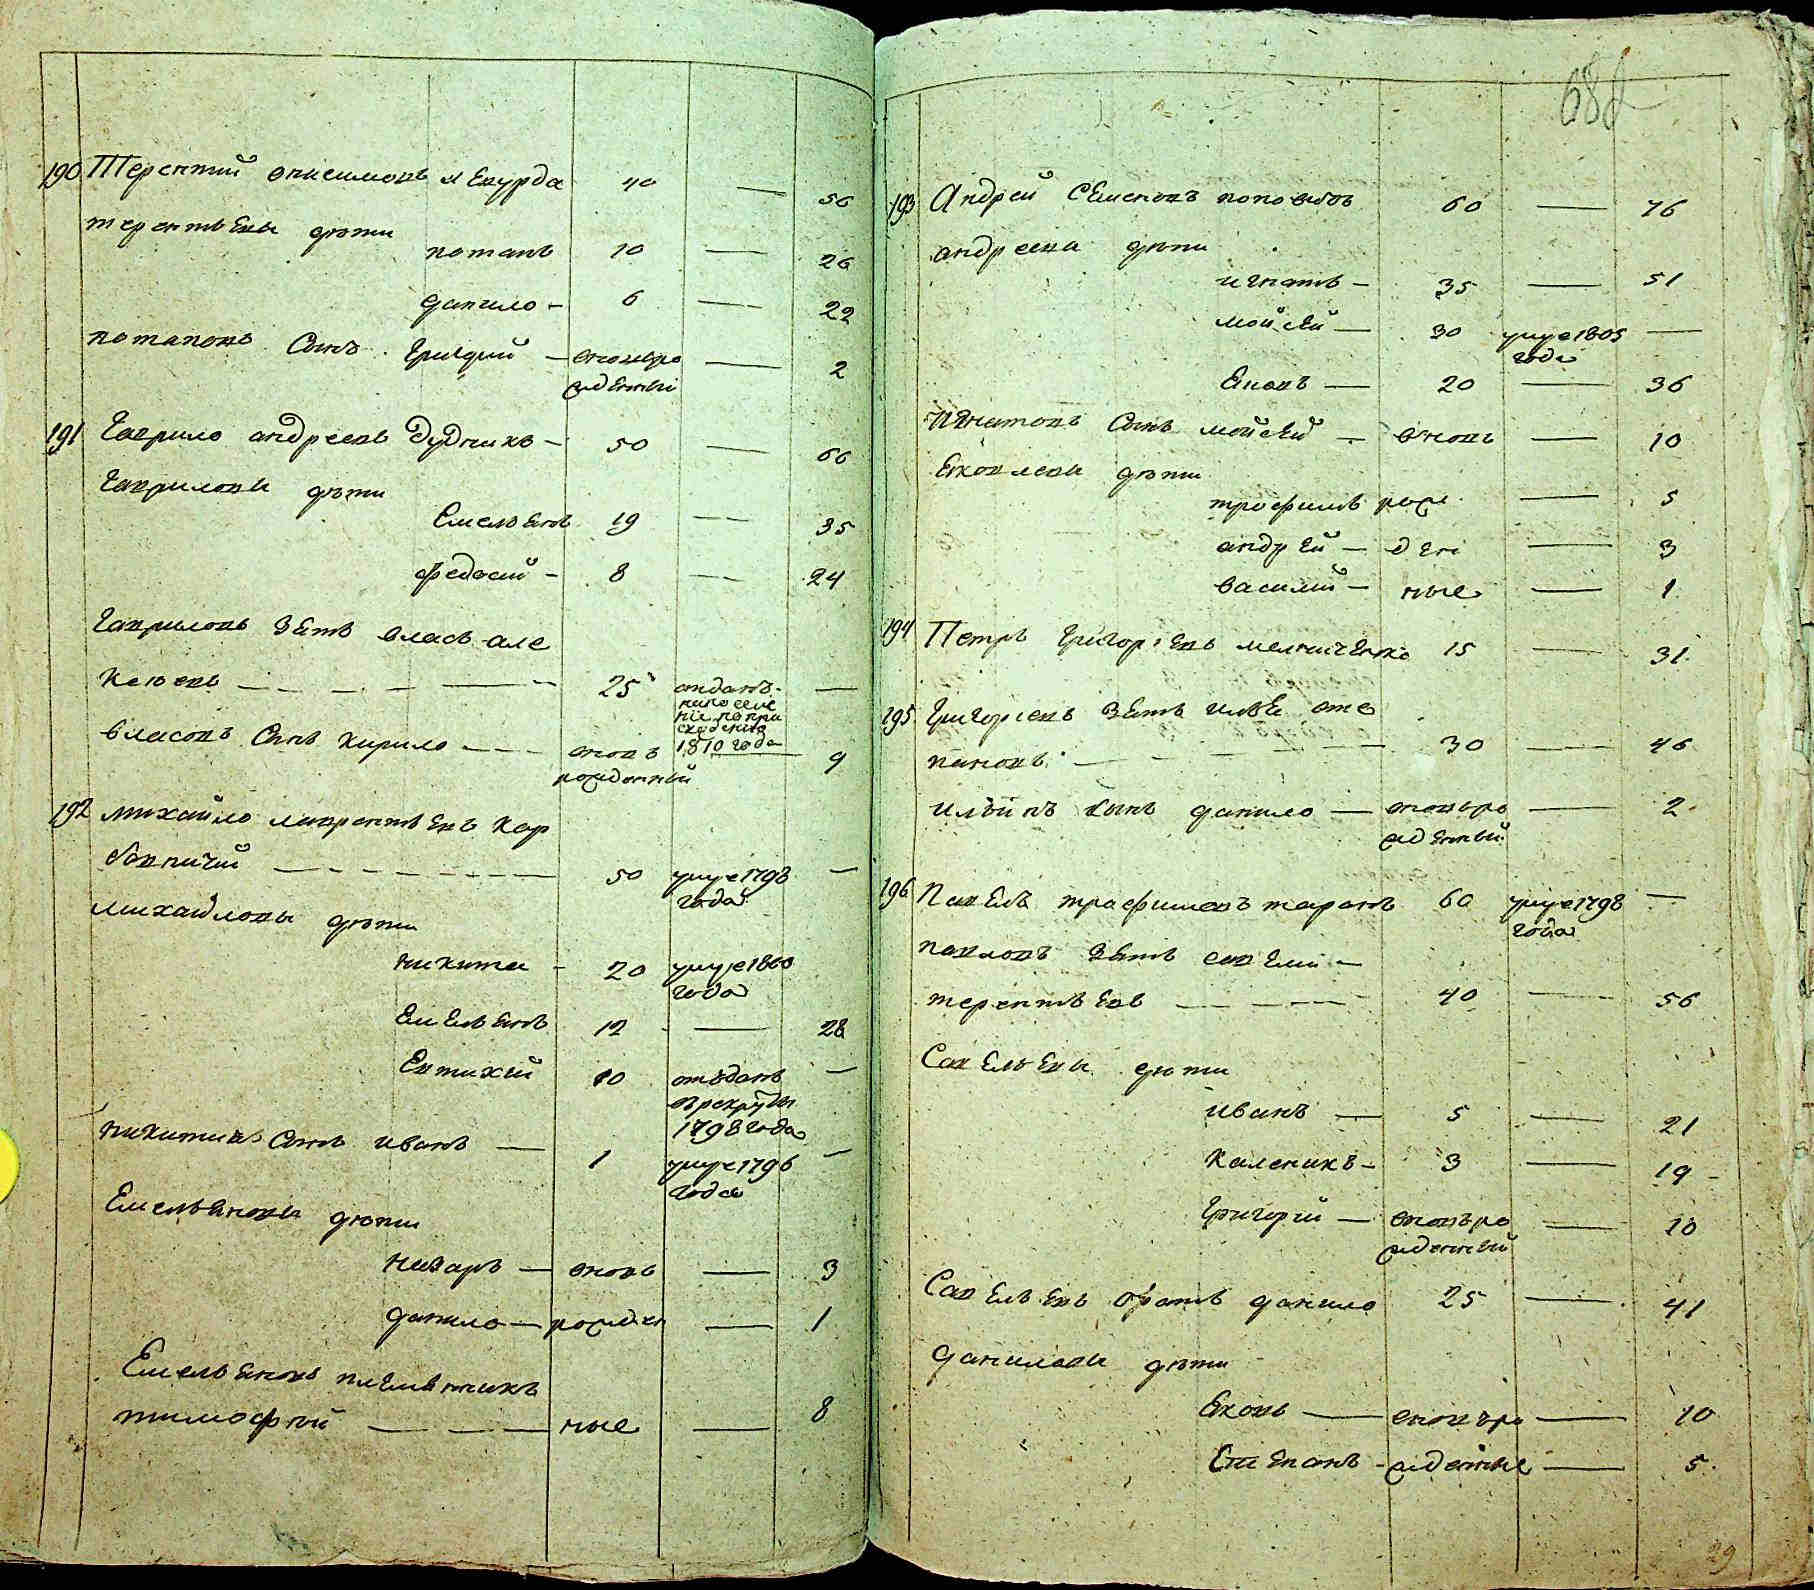 682
190 Терентий онисимовъ мекурда 40 — 56
терентьевы дѣти
потапъ 10 — 26
данило — 6 — 22
потаповъ Сынъ Григорий — вновьро — 2
жденный
191 Гаврило андреевъ Дудникъ — 50 — 66
Гавриловы дѣти
Емельянъ 19 — 35
федосий — 8 — 24
Гавриловъ Зять власъ але
ксѣевъ — 25 отданъ —
на поселе
ние
1810 года
власовъ Сынъ кирило — вновь — 9
рожденный
192 михайло лаврентьевъ кар
бовничий — 50 умре 1798 —
года
михайловы дѣти
никита — 20 умре 1800
года
Емельянъ 12 — 28
Евтихий 10 отъданъ —
врекруты
1798 года
никитинъ Сынъ иванъ — 1 умре 1796 —
года
Емельяновы дѣти
назаръ — вновь — 3
данило — рожден — 1
Емельяновъ племянникъ
тимофѣй — ные — 8
193 Андрей Семеновъ поповичъ 60 — 76
андреевы дѣти
игнатъ — 35 — 51
мойсей — 30 умре 1805 —
годѣ
Яковъ — 20 — 36
Игнатовъ Сынъ мойсей — вновь — 10
Яковлевы дѣти
трофимъ рож — 5
андрей — ден — 3
василий — ные — 1
194 Петръ Григорьевъ мелниченко 15 — 31
195 Григориевъ Зять илья сте
пановъ — 30 — 46
ильинъ сынъ данило — вновьро — 2
жденный
196 Павелъ трофимовъ таранъ 60 умре 1798 —
года
павловъ Зять савелий —
терентьевъ — 40 — 56
Савельевы дѣти
иванъ — 5 — 21
каленикъ — 3 — 19
Григорий — вновьро — 10
жденный
Савельевъ братъ данило 25 — 41
даниловы дѣти
Яковъ — вновьро — 10
Степанъ — жденные — 5
29